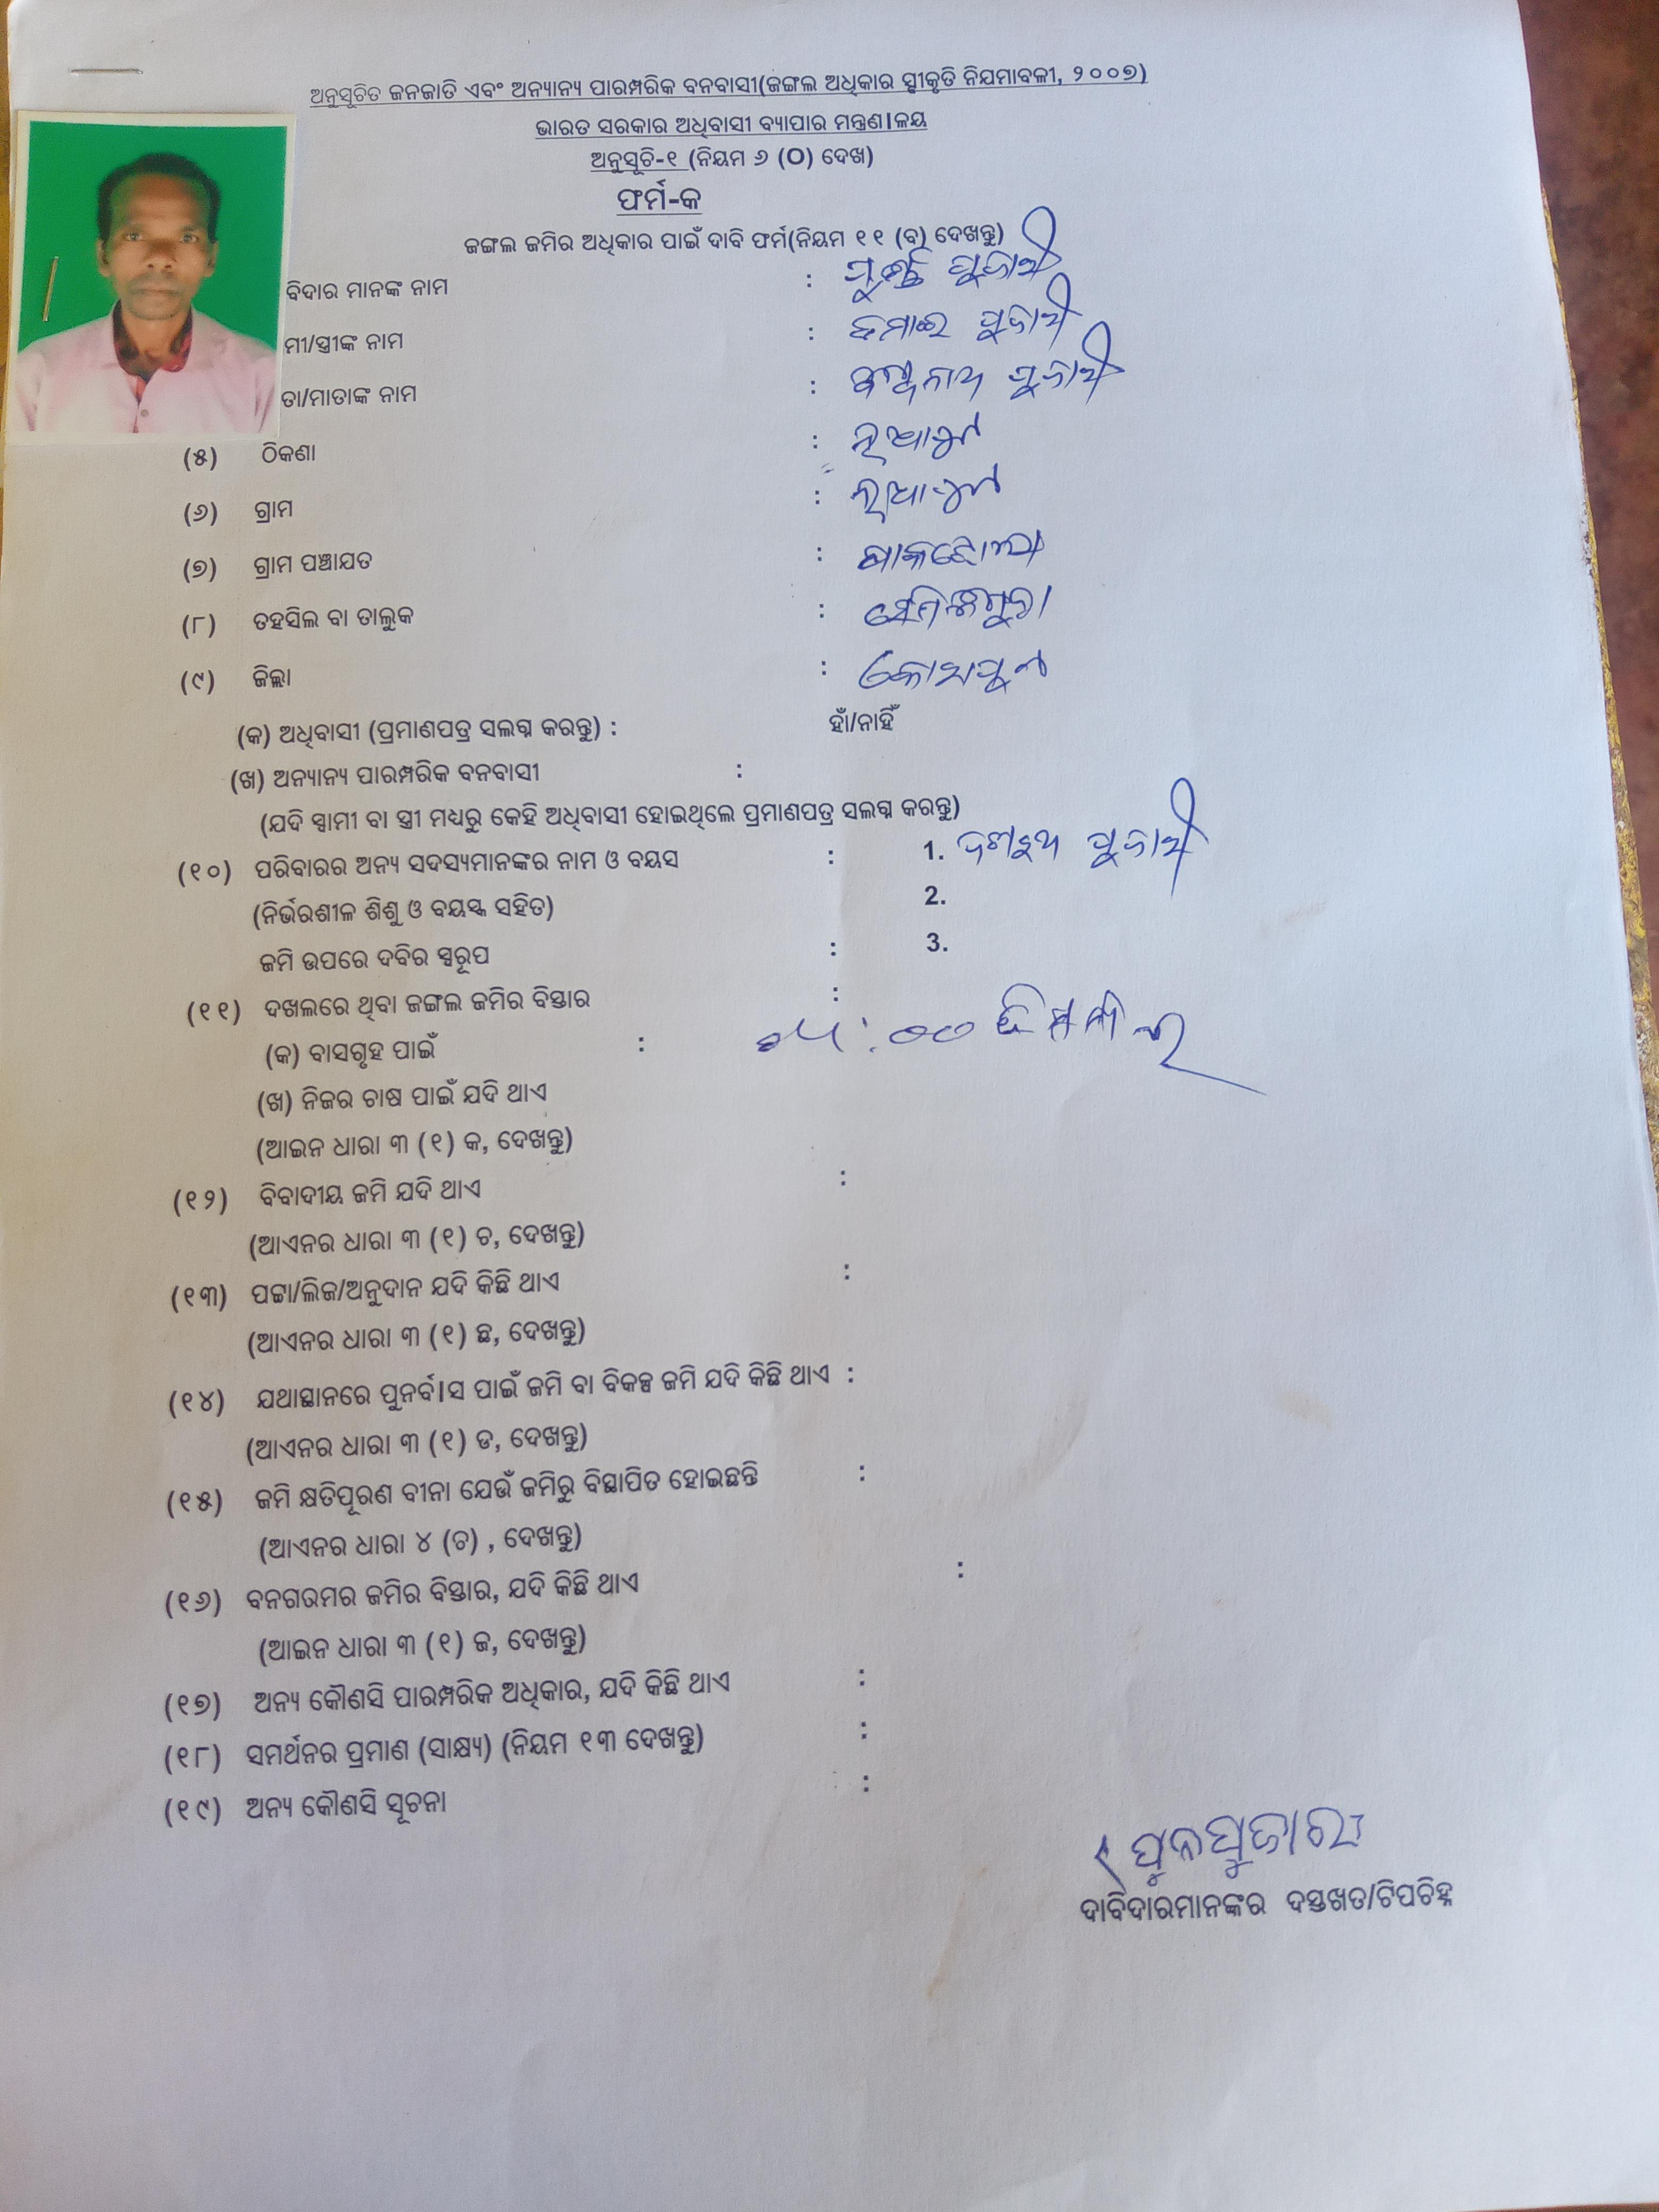 ଅନୁସୂଚିତ ଜନଜାତି ଏବଂ ଅନ୍ୟାନ୍ୟ ପାରମ୍ପରିକ ବନବାସୀ(ଜଙ୍ଗଲ ଅଧିକାର ସ୍ବୀକୃତି ନିଯମାବଳୀ, ୨୦୦୭)
ଭାରତ ସରକାର ଅଧିବାସୀ ବ୍ୟାପାର ମନ୍ତ୍ରଣାଳୟ
ଅନୁସୂଚି-୧ (ନିୟମ ୬ (O) ଦେଖ)
ଫର୍ମ-କ
ଜଙ୍ଗଲ ଜମିର ଅଧିକାର ପାଇଁ ଦାବି ଫର୍ମ(ନିୟମ ୧୧ (ବ) ଦେଖନ୍ତୁ)
ବିଦାର ମାନଙ୍କ ନାମ : ପୁଜାରୀ
ମୀ/ସ୍ତ୍ରୀଙ୍କ ନାମ : ପୁଜାରୀ
ତା/ମାତାଙ୍କ ନାମ : ପୁଜାରୀ
(୫) ଠିକଣା :
(୬) ଗ୍ରାମ :
(୭) ଗ୍ରାମ ପଞ୍ଚାଯତ :
(୮) ତହସିଲ ବା ତାଲୁକ : ସେମିଳିଗୁଡ଼ା
(୯) ଜିଲ୍ଲା : କୋରାପୁଟ
(କ) ଅଧିବାସୀ (ପ୍ରମାଣପତ୍ର ସଲଗ୍ନ କରନ୍ତୁ) : ହାଁ/ନାହିଁ
(ଖ) ଅନ୍ୟାନ୍ୟ ପାରମ୍ପରିକ ବନବାସୀ :
(ଯଦି ସ୍ୱାମୀ ବା ସ୍ତ୍ରୀ ମଧ୍ୟରୁ କେହି ଅଧିବାସୀ ହୋଇଥିଲେ ପ୍ରମାଣପତ୍ର ସଲଗ୍ନ କରନ୍ତୁ)
(୧୦) ପରିବାରର ଅନ୍ୟ ସଦସ୍ୟମାନଙ୍କର ନାମ ଓ ବୟସ : 1. ପୁଜାରୀ
(ନିର୍ଭରଶୀଳ ଶିଶୁ ଓ ବୟସ୍କ ସହିତ) 2.
ଜମି ଉପରେ ଦବିର ସ୍ୱରୂପ : 3.
(୧୧) ଦଖଲରେ ଥିବା ଜଙ୍ଗଲ ଜମିର ବିସ୍ତାର :
(କ) ବାସଗୃହ ପାଇଁ :
(ଖ) ନିଜର ଚାଷ ପାଇଁ ଯଦି ଥାଏ
(ଆଇନ ଧାରା ୩ (୧) କ, ଦେଖନ୍ତୁ)
(୧୨) ବିବାଦୀୟ ଜମି ଯଦି ଥାଏ :
(ଆଏନର ଧାରା ୩ (୧) ଚ, ଦେଖନ୍ତୁ)
(୧୩) ପଟ୍ଟା/ଲିଜ/ଅନୁଦାନ ଯଦି କିଛି ଥାଏ :
(ଆଏନର ଧାରା ୩ (୧) ଛ, ଦେଖନ୍ତୁ)
(୧୪) ଯଥାସ୍ଥାନରେ ପୁନର୍ବାସ ପାଇଁ ଜମି ବା ବିକଳ୍ପ ଜମି ଯଦି କିଛି ଥାଏ :
(ଆଏନର ଧାରା ୩ (୧) ଡ, ଦେଖନ୍ତୁ)
(୧୫) ଜମି କ୍ଷତିପୂରଣ ବୀନା ଯେଉଁ ଜମିରୁ ବିସ୍ଥାପିତ ହୋଇଛନ୍ତି :
(ଆଏନର ଧାରା ୪ (ଚ) , ଦେଖନ୍ତୁ)
(୧୬) ବନଗରମର ଜମିର ବିସ୍ତାର, ଯଦି କିଛି ଥାଏ :
(ଆଇନ ଧାରା ୩ (୧) ଜ, ଦେଖନ୍ତୁ)
(୧୭) ଅନ୍ୟ କୌଣସି ପାରମ୍ପରିକ ଅଧିକାର, ଯଦି କିଛି ଥାଏ :
(୧୮) ସମର୍ଥନର ପ୍ରମାଣ (ସାକ୍ଷ୍ୟ) (ନିୟମ ୧୩ ଦେଖନ୍ତୁ) :
(୧୯) ଅନ୍ୟ କୌଣସି ସୂଚନା :
ଦାବିଦାରମାନଙ୍କର ଦସ୍ତଖତ/ଟିପଚିହ୍ନ